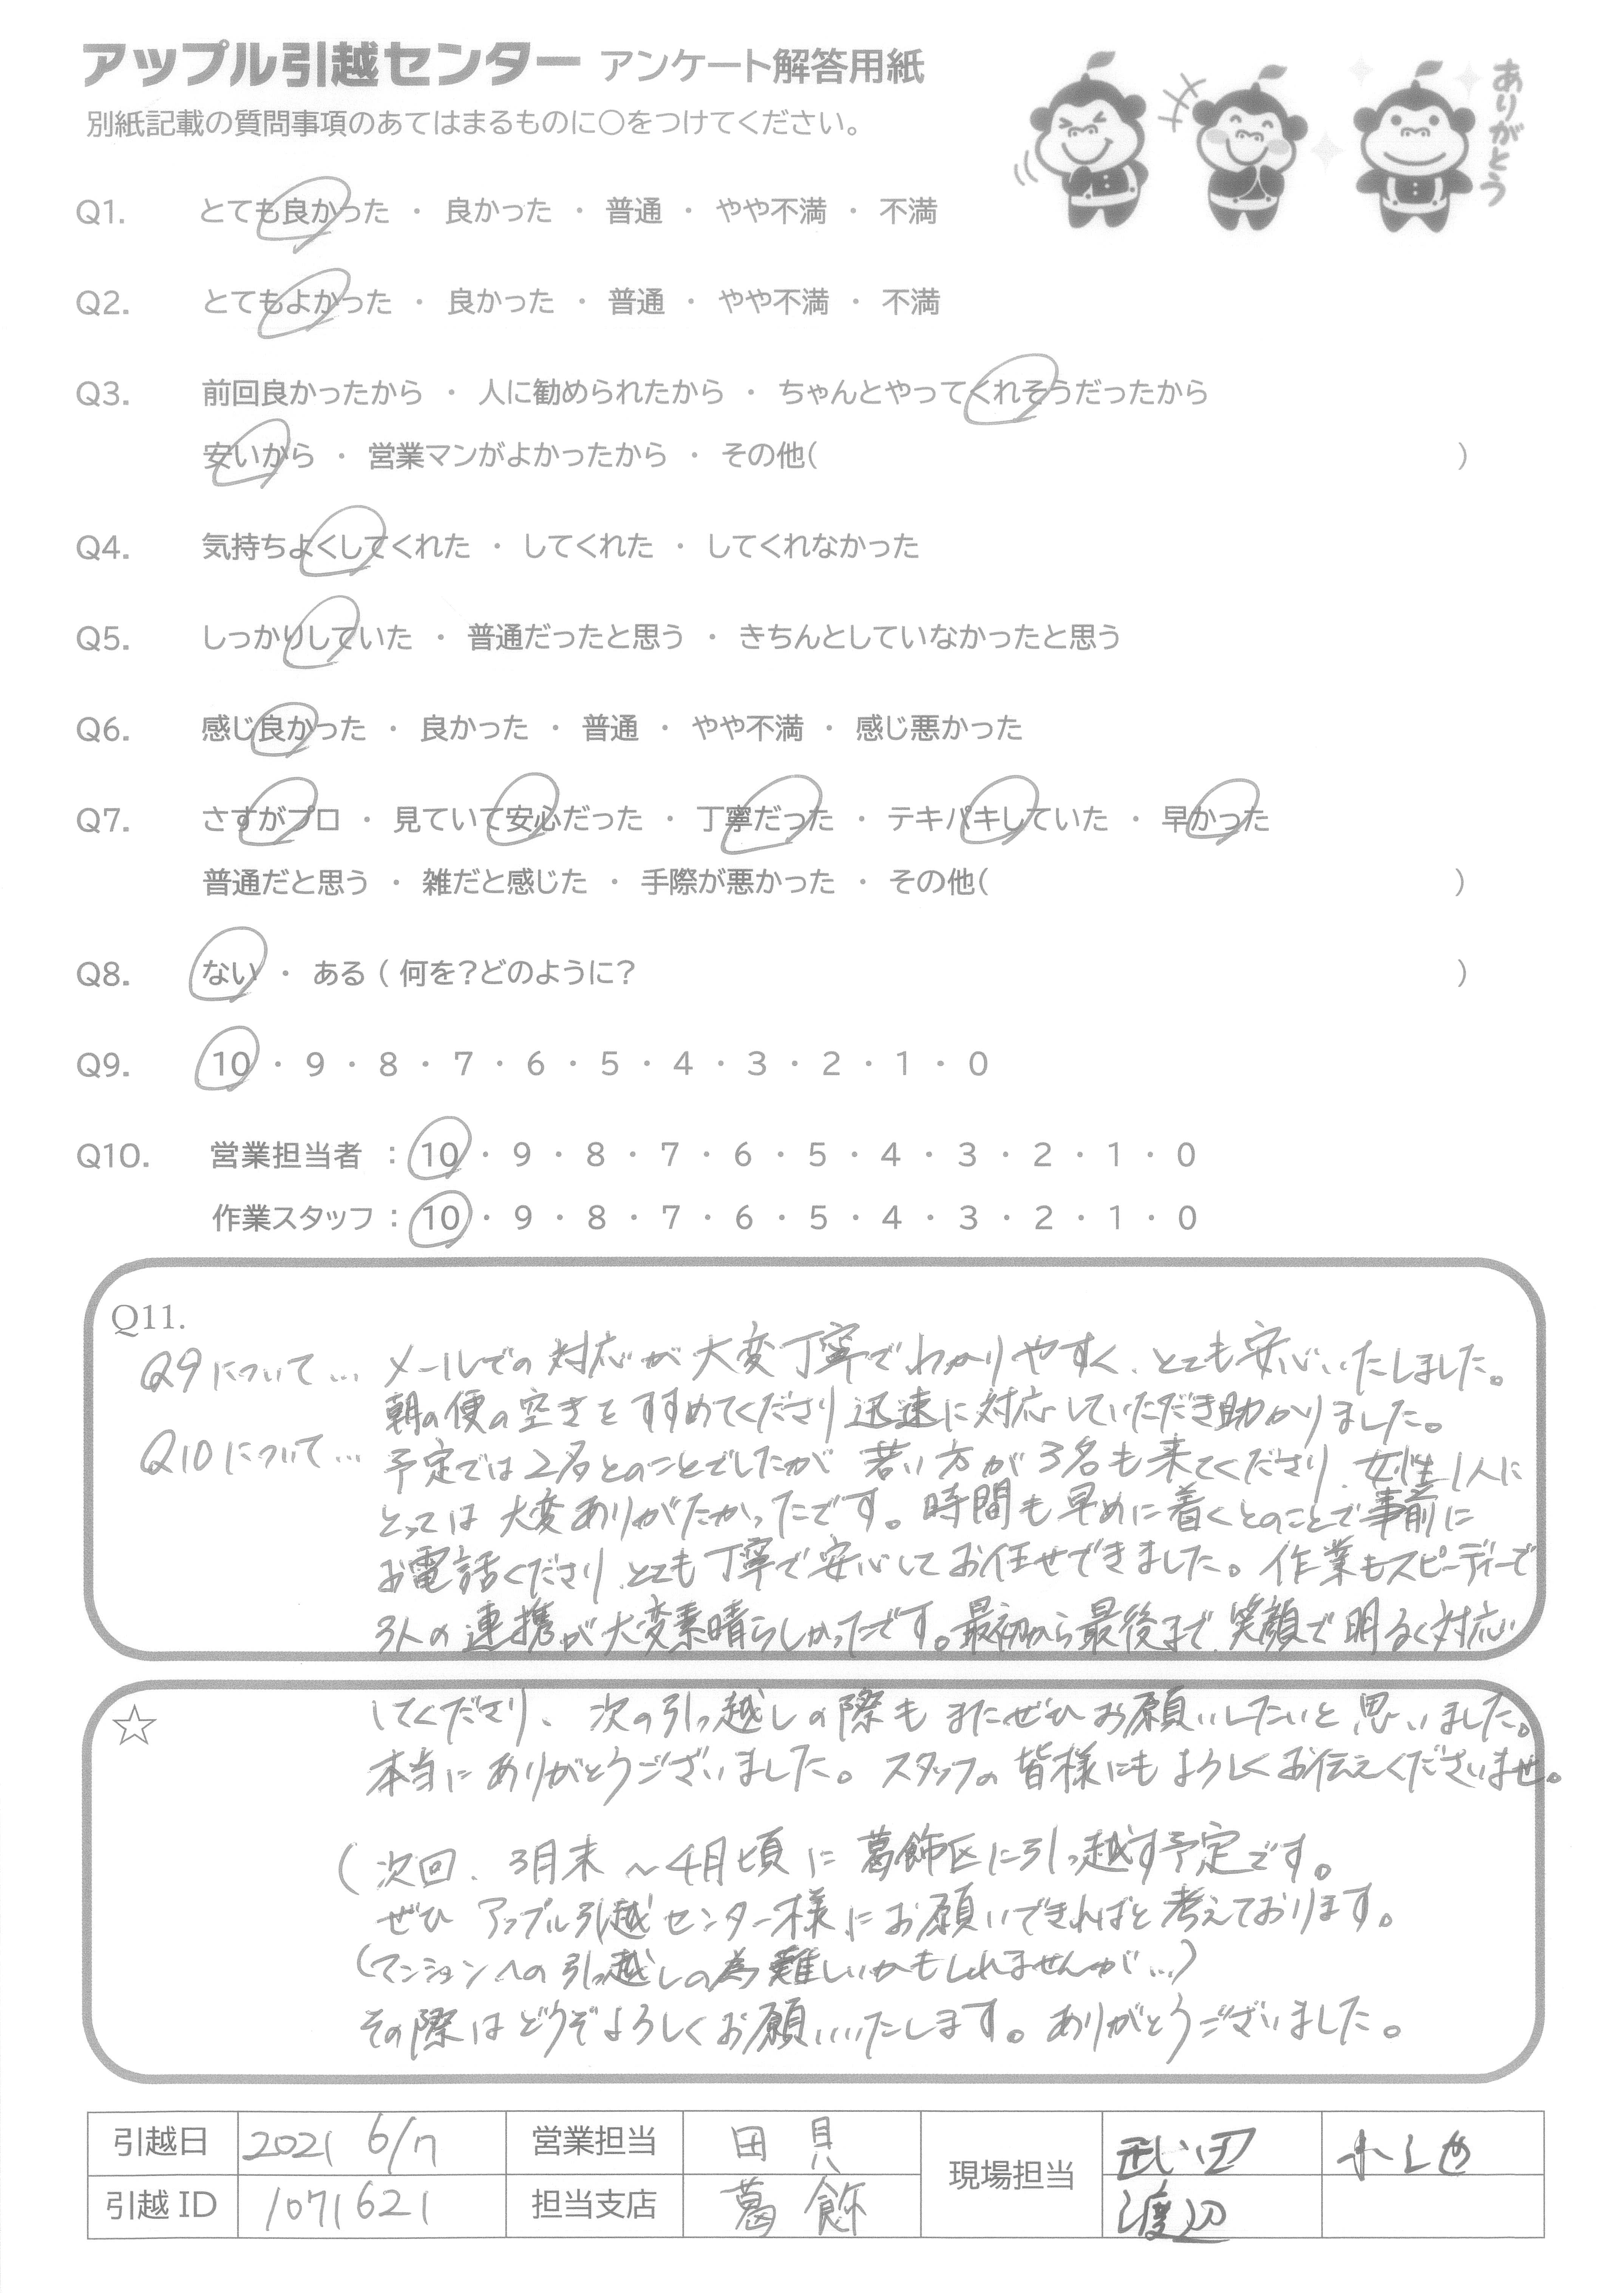 アップル引越センター アンケート解答用紙
別紙記載の質問事項のあてはまるものに○をつけてください。
ありがとう
Q1. とても良かった ・ 良かった ・ 普通 ・ やや不満 ・ 不満
Q2. とてもよかった ・ 良かった ・ 普通 ・ やや不満 ・ 不満
Q3. 前回良かったから ・ 人に勧められたから ・ ちゃんとやってくれそうだったから
安いから ・ 営業マンがよかったから ・ その他( )
Q4. 気持ちよくしてくれた ・ してくれた ・ してくれなかった
Q5. しっかりしていた ・ 普通だったと思う ・ きちんとしていなかったと思う
Q6. 感じ良かった ・ 良かった ・ 普通 ・ やや不満 ・ 感じ悪かった
Q7. さすがプロ ・ 見ていて安心だった ・ 丁寧だった ・ テキパキしていた ・ 早かった
普通だと思う ・ 雑だと感じた ・ 手際が悪かった ・ その他( )
Q8. ない ・ ある ( 何を?どのように? )
Q9. 10 ・ 9 ・ 8 ・ 7 ・ 6 ・ 5 ・ 4 ・ 3 ・ 2 ・ 1 ・ 0
Q10. 営業担当者 : 10 ・ 9 ・ 8 ・ 7 ・ 6 ・ 5 ・ 4 ・ 3 ・ 2 ・ 1 ・ 0
作業スタッフ : 10 ・ 9 ・ 8 ・ 7 ・ 6 ・ 5 ・ 4 ・ 3 ・ 2 ・ 1 ・ 0
Q11.
Q9について… メールでの対応が大変丁寧でわかりやすく、とても安心いたしました。
朝の便の空きをすすめてくださり迅速に対応していただき助かりました。
Q10について… 予定では2名とのことでしたが若い方が3名も来てくださり、女性1人に
とっては大変ありがたかったです。時間も早めに着くとのことで事前に
お電話くださり、とても丁寧で安心してお任せできました。作業もスピーディーで
3人の連携が大変素晴らしかったです。最初から最後まで、笑顔で明るく対応
☆ してくださり、次の引っ越しの際もまたぜひお願いしたいと思いました。
本当にありがとうございました。スタッフの皆様にもよろしくお伝えくださいませ。
(次回、3月末〜4月頃に葛飾区に引っ越す予定です。
ぜひアップル引越センター様にお願いできればと考えております。
(マンションへの引っ越しの為難しいかもしれませんが…)
その際はどうぞよろしくお願いいたします。ありがとうございました。
引越日 2021 6/7 営業担当 田貝 現場担当 武田
引越 ID 1071621 担当支店 葛飾 渡辺